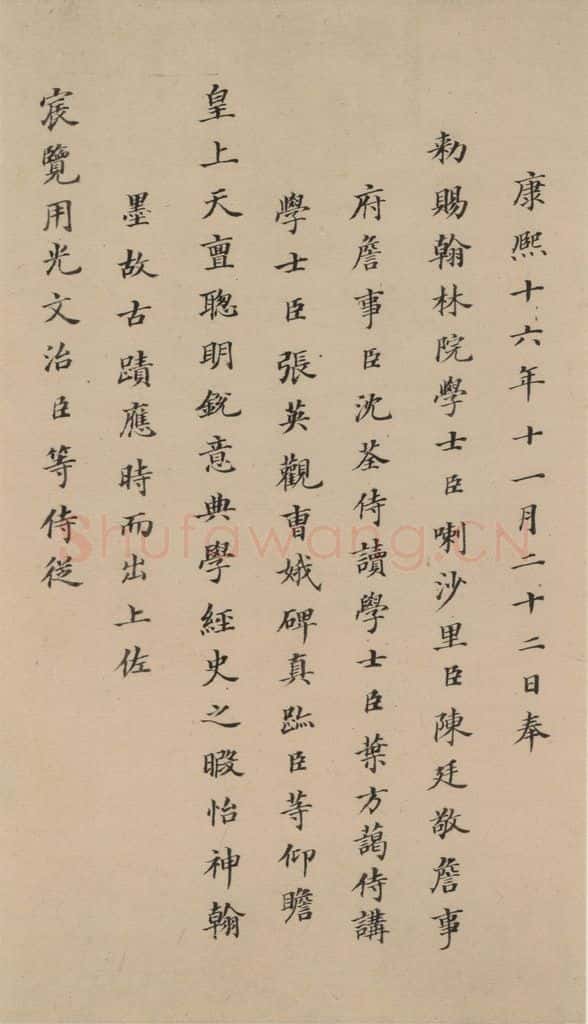 康熙十六年十一月二十二日奉
勅賜翰林院學士臣喇沙里臣陳廷敬詹事
府詹事臣沈荃侍讀學士臣葉方藹侍講
學士臣張英觀曹娥碑真跡臣等仰瞻
皇上天亶聰明銳意典學經史之暇怡神翰
墨故古蹟應時而出上佐
宸覽用光文治臣等侍從
Shufawang.CN